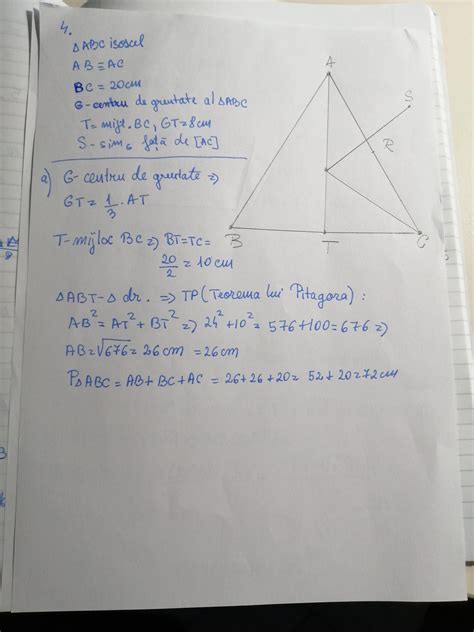 4.
△ABC isoscel
AB ≡ AC
BC = 20cm
G-centru de greutate al △ABC
T = mijl. BC, GT = 8cm
S - sim față de [AC]
a) G - centru de greutate ⇒
GT = 1/3 · AT
T-mijloc BC ⇒ BT=TC=
20/2 = 10cm
△ABT-△ dr. ⇒ TP (Teorema lui Pitagora):
AB² = AT² + BT² ⇒ 24² + 10² = 576 + 100 = 676 ⇒
AB = √676 = 26cm = 26cm
P△ABC = AB + BC + AC = 26 + 26 + 20 = 52 + 20 = 72cm
A
S
R
B
T
C